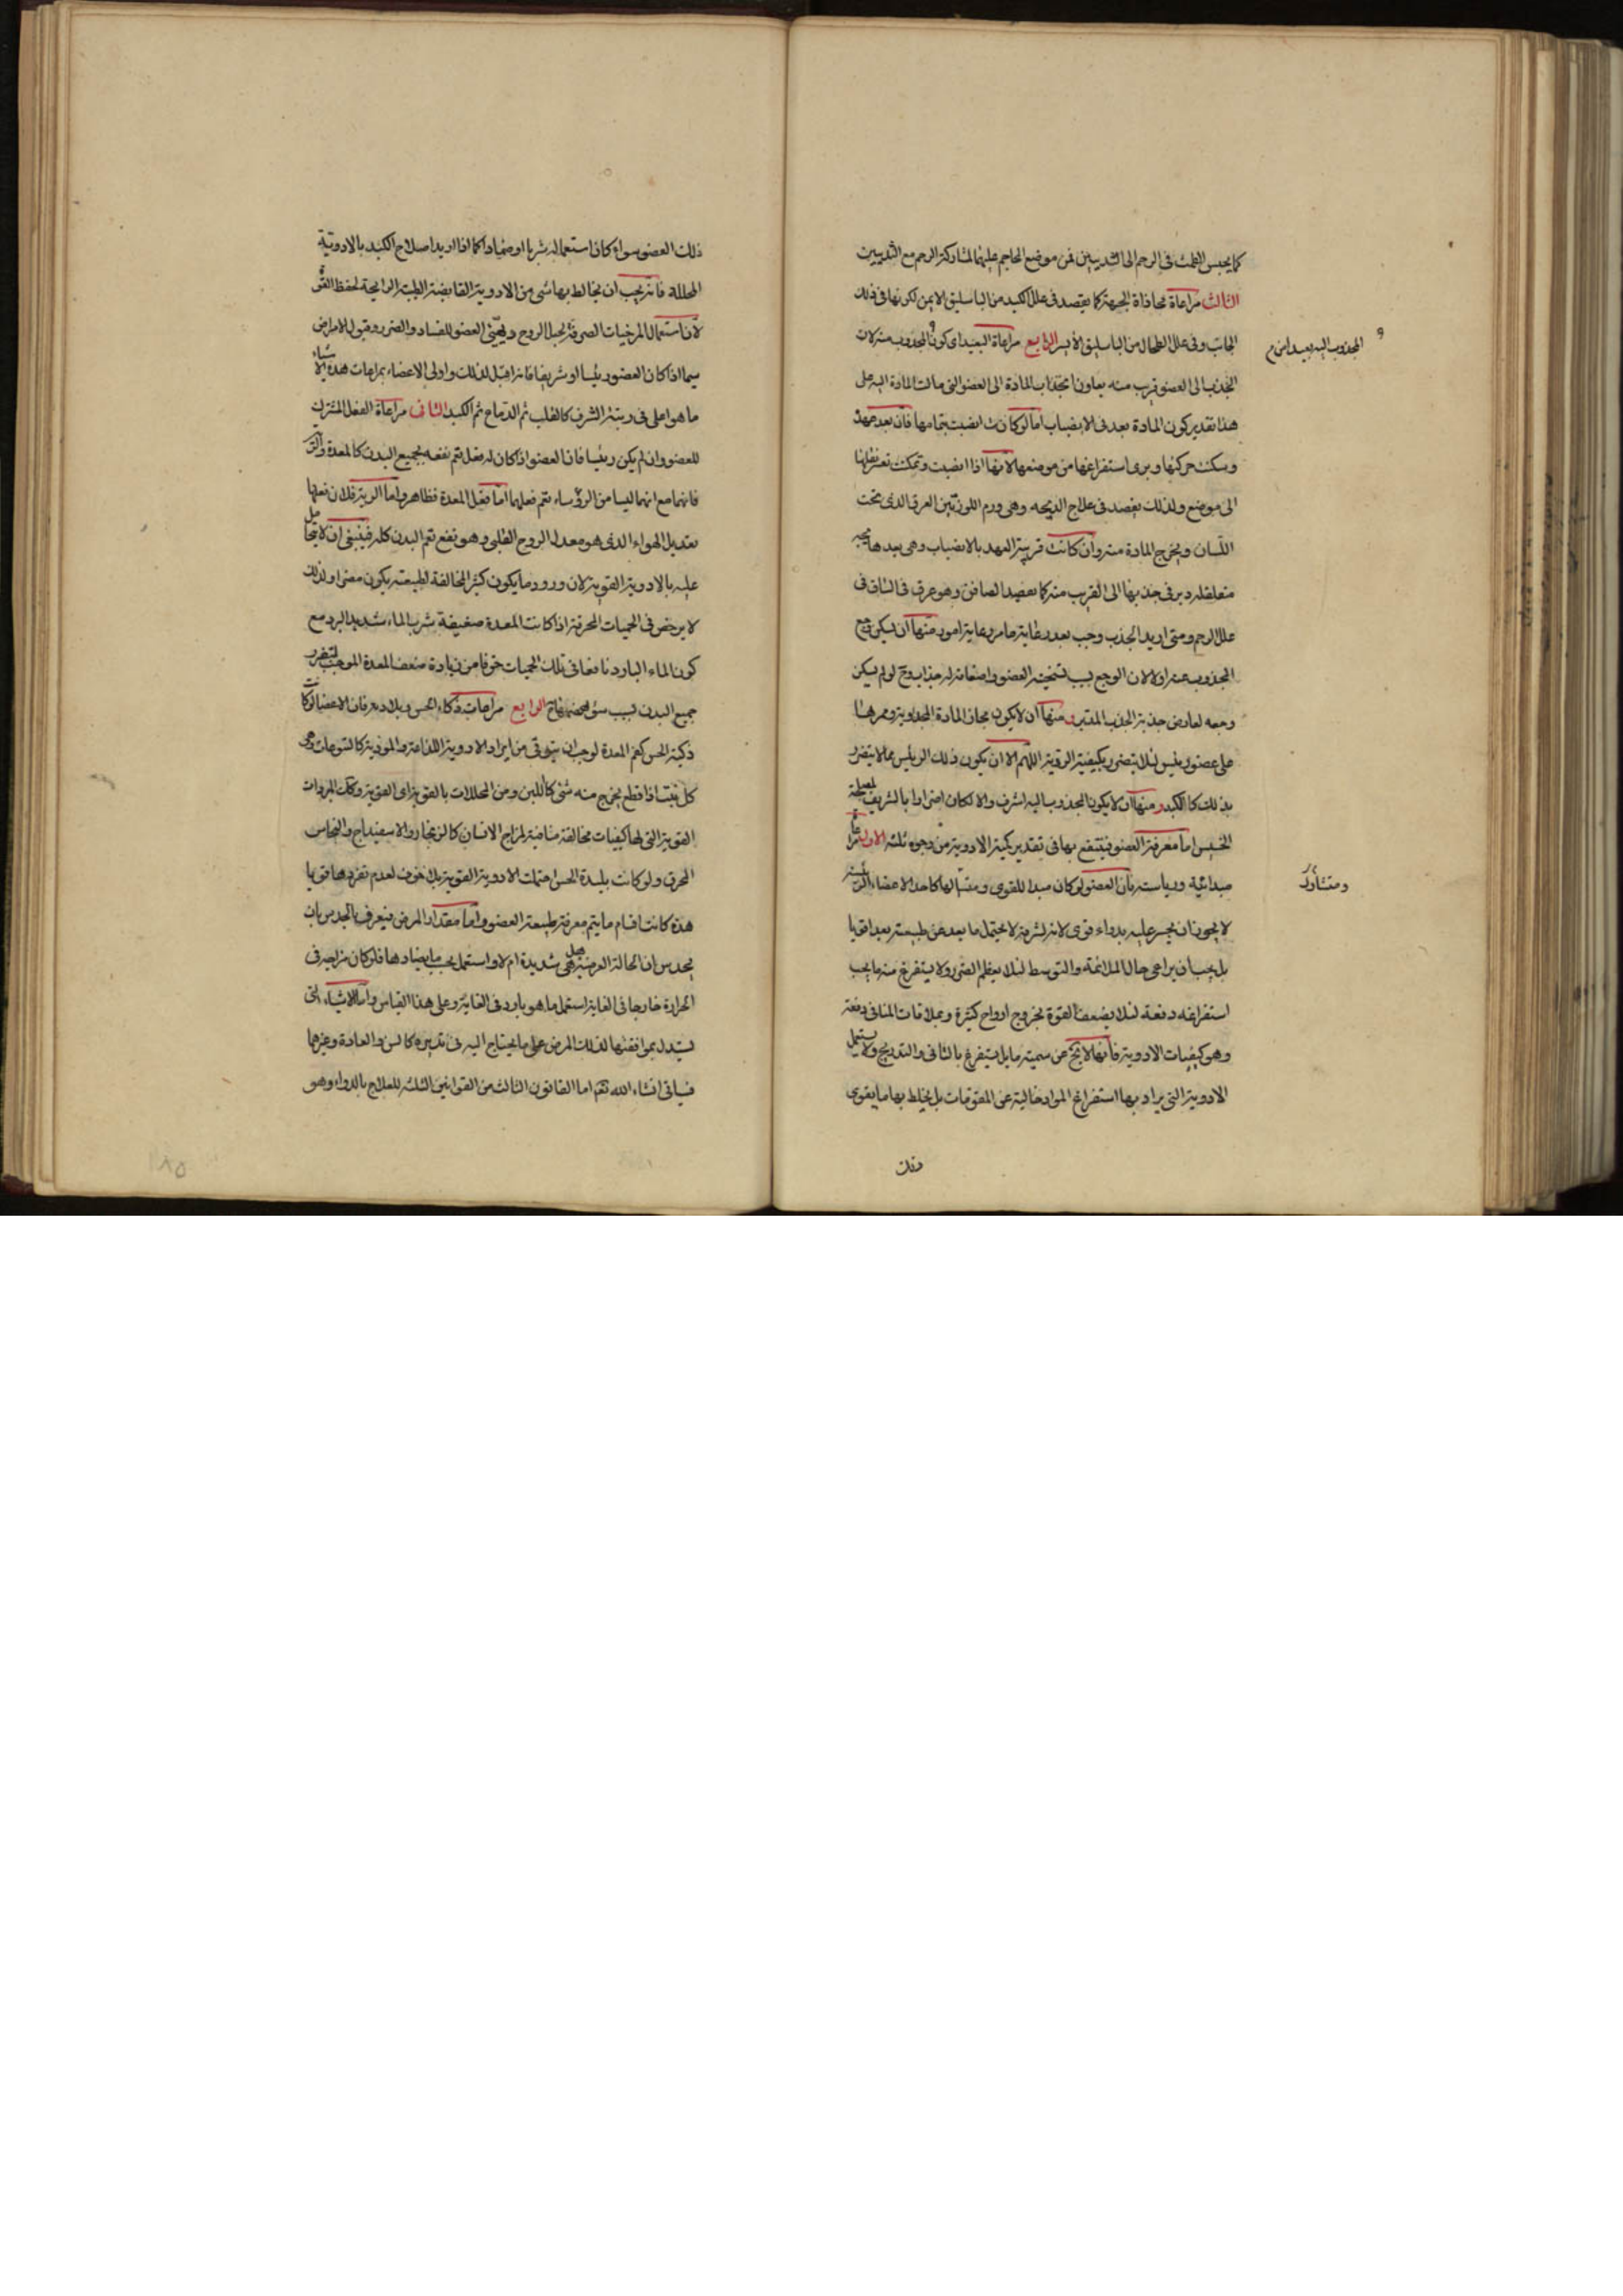 كما يحبس الطمث في الرحم الى الثديين فمن موضع المحاجم عليهما لمشاركة الرحم مع الثديين
الثالث مراعاة محاذاة الجهة كما يفصد في علل الكبد من الباسليق الايمن لكونها في ذلك
الجانب وفي علل الطحال من الباسليق الايسر الرابع مراعاة البعيد اى كون المجذوب منه لان
و المجذوب اليه بعيدا من
الجذب الى العضو قريب منه يعاون انجذاب المادة الى العضو التي مالت المادة اليه على
هذا تقدير كون المادة بعد في الانصباب اما لو كانت انصبت بتمامها فان بعد عهد
وسكنت حركتها ويرى استفراغها من موضعها لانها اذا انصبت وتمكنت تعسر نقلها
الى موضع ولذلك يفصد في علاج الذبحه وهى ورم اللوزتين العرق الذى تحت
اللسان ويخرج المادة منه وان كانت قريبة العهد بالانصباب وهى بعد
متعلقله دبر في جذبها الى القريب منه كما يفصد الصافن وهو عرق في الساق في
علل الرحم ومتى اريد الجذب وجب بعد رعاية ما مر رعاية امور منها ان يسكن وجع
المجذوب عنه اولا لان الوجع بسبب تسخينه العضو واضعافه له جذاب وح لو لم يسكن
وجعه لعارض جذبة الجذب المدتبر ومنها ان لا يكون مجاز المادة المجذوبة وممرها
على عضو رئيس لئلا يتضرر بكيفيته الردية اللهم الا ان يكون ذلك الرئيس مما لا يتضرر
بذلك كالكبد ومنها ان لا يكون المجذوب اليه اشرف والا لكان اضرارا بالشريف لمصلحة
الخسيس اما معرفة العضو فينتفع بها في تقدير كمية الادوية من وجوه ثلثه الاول مراعاة
مبدائية ورياسته بان العضو لو كان مبدا للقوى ومنشأ لها كاحد الاعضاء الرئيسة
ومتشارك
لا يجوز ان يجسر عليه بدواء قوى لانه لشرفه لا يحتمل ما بعد عن طبيعته بعدا قويا
بل يجب ان يراعى حال الملائمة والتوسط لئلا يعظم الضرر ولا يستفرغ منه ما يجب
استفراغه دفعة لئلا يضعف القوة بخروج ارواح كثيرة وبملاقات المنافى دفعة
وهو كيفيات الادوية فانها لا تخ عن سمية ما بل يستفرغ بالتانى والتدريج ولا يستعمل
الادوية التي يراد بها استفراغ المواد خالية عن المقويات بل يخلط بها ما يقوى
ذلك العضو سواء كان استعماله شربا او ضمادا كما اذا اريد اصلاح الكبد بالادوية
المحللة فانه يجب ان يخالط بها شى من الادوية القابضة الطيبة الرايحة لحفظ القوة
لان استعمال المرخيات الصرفة يحيل الروح ويهيئ العضو للفساد والضرر وقبول الامراض
سيما اذا كان العضو رئيسا او شريفا فانه اقبل لذلك واولى الاعضاء بمراعات هذه الاشياء
ما هو اعلى في رتبة الشرف كالقلب ثم الدماغ ثم الكبد الثانى مراعاة الفعل المشترك
للعضو وان لم يكن رئيسا فان العضو اذا كان له فعل يتم نفعه بجميع البدن كالمعدة والرية
فانهما مع انهما ليسا من الرؤساء يتم فعلهما اما فعل المعدة فظاهر واما الرية فلان فعلها
تعديل الهواء الذى هو معدل الروح القلبى وهو نفع يتم البدن كله فينبغى ان لا يحمل
عليه بالادوية القوية لان ورود ما يكون كثير المخالفة لطبيعته يكون مضرا ولذلك
لا يرخص في الحميات المحرقة اذا كانت المعدة ضعيفة شرب الماء شديد البرد مع
كون الماء البارد نافعا في تلك الحميات خوفا من زيادة ضعف المعدة الموجب لتضرر
جميع البدن بسبب سؤ الهضم الرابع مراعات ذكاء الحس وبلادته فان الاعضا لو كانت
ذكية الحس كفم المعدة لوجب ان يتوقى من ايراد الادوية اللذاعة والموذية كاليتوعات وهى
كل نبت اذا قطع يخرج منه شئ كاللبن ومن المحللات بالقوة اى القوية وكك المبردات
القوية التي لها كيفيات مخالفة منافية لمزاج الانسان كالزنجار والاسفيداج والنحاس
المحرق ولو كانت بليدة الحس احتملت الادوية القوية بلا خوف لعدم تضررها قويا
هذه كانت اقسام ما يتم معرفة طبيعة العضو واما مقدار المرض فيعرف بالحدس بان
يحدس ان الحالة العرضية هل هى شديدة ام لا واستعمل بحسبها ما يضادها فلو كان مزاجه في
الحرارة خارجا في الغاية استعمل ما هو بارد في الغاية وعلى هذا القياس واما الاشياء التى
يستدل بموافقتها لذلك المرض على ما يحتاج اليه في تدبيره كالسن والعادة وغيرها
فسياتى انشاء الله تعم اما القانون الثالث من القوانين الثلثه للعلاج بالدواء وهو